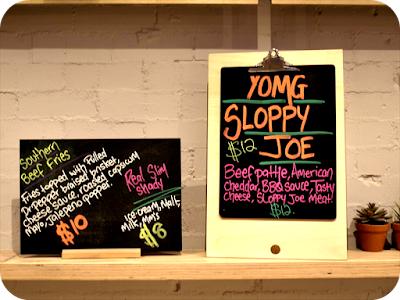 Southern
Beef Fries
Fries topped with Pulled
Dr Pepper braised brisket,
cheese sauce, roasted capsicum
mayo, jalepeno popper.
$10
Red Slim
Shady
Ice-cream, Malt,
Milk, M&Ms
$8
YOMG
SLOPPY
$12
JOE
Beef pattie, American
cheddar, BBQ sauce, Tasty
cheese, Sloppy Joe Meat!
$12.